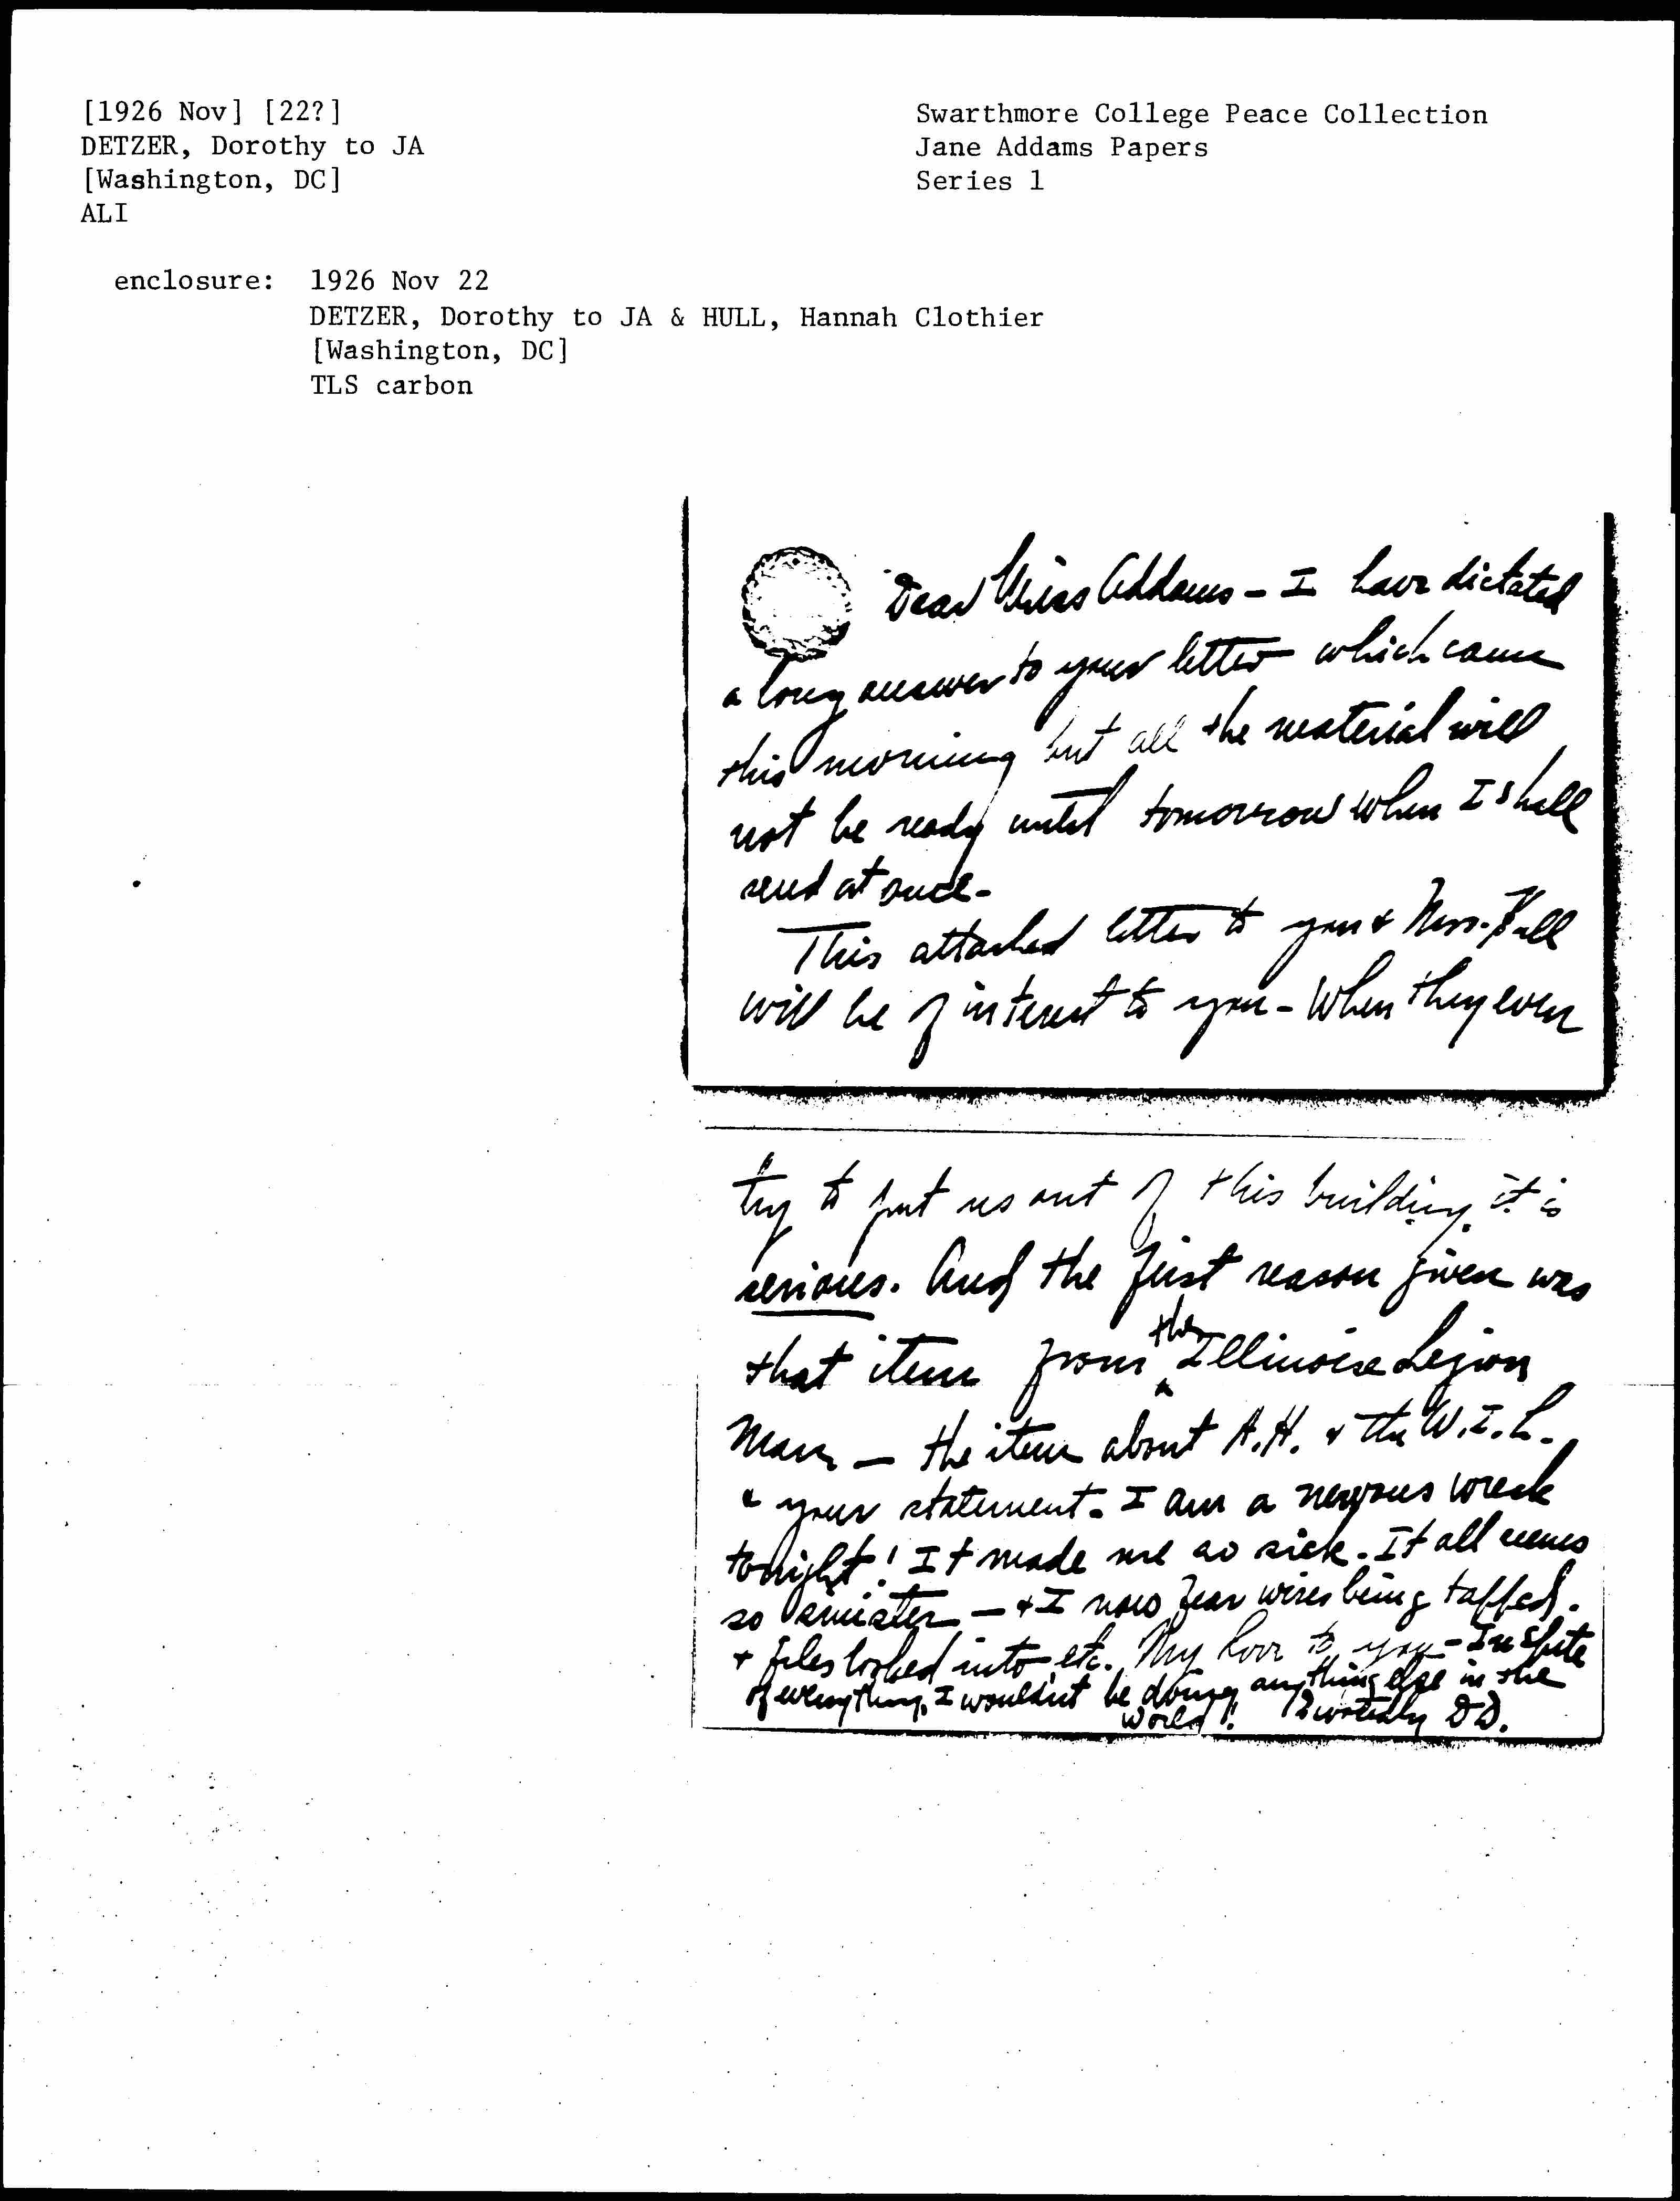 [1926 Nov] [22?]
DETZER, Dorothy to JA
[Washington, DC]
ALI
Swarthmore College Peace Collection
Jane Addams Papers
Series 1
enclosure: 1926 Nov 22
DETZER, Dorothy to JA & HULL, Hannah Clothier
[Washington, DC]
TLS carbon
Dear Miss Addams - I have dictated
a long answer to your letter which came
this morning but all the material will
not be ready until tomorrow when I shall
send at once -
This attached letter to you & Mrs. Hull
will be of interest to you - When they even
try to put us out of this building it is
serious. And the first reason given was
that item from the Illinois Legion
Man - the item about A.H. & the W.I.L.
& your statement. I am a nervous wreck
tonight! It made me so sick. It all seems
so sinister - & I now fear wires being tapped.
& files looked into etc. My love to you - In spite
of everything, I wouldn't be doing anything else in the
world! Devotedly DD.